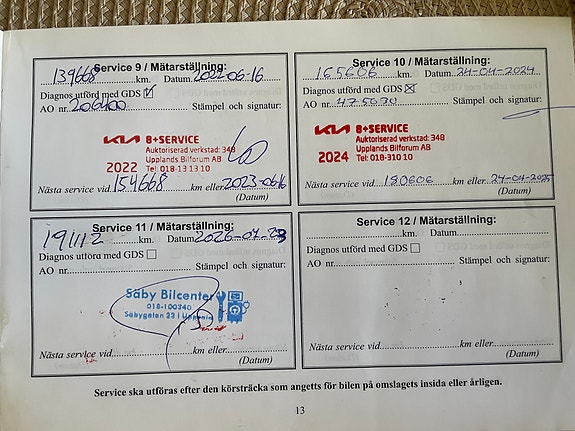 Service 9 / Mätarställning:
139668 km. Datum 2022-06-16
Diagnos utförd med GDS
AO nr. 206400 Stämpel och signatur:
KIA 8+SERVICE
Auktoriserad verkstad: 348
Upplands Bilforum AB
2022 Tel: 018-13 13 10
Nästa service vid 154668 km eller 2023-06-16
(Datum)
Service 10 / Mätarställning:
165606 km. Datum 24-04-2024
Diagnos utförd med GDS
AO nr. 475070 Stämpel och signatur:
KIA 8+SERVICE
Auktoriserad verkstad: 348
Upplands Bilforum AB
2024 Tel: 018-310 10
Nästa service vid 180606 km eller 24-04-2025
(Datum)
Service 11 / Mätarställning:
191112 km. Datum 2026-07-23
Diagnos utförd med GDS
AO nr. Stämpel och signatur:
Säby Bilcenter
018-100340
Säbygatan 23 i Uppsala
Nästa service vid km eller
(Datum)
Service 12 / Mätarställning:
km. Datum
Diagnos utförd med GDS
AO nr. Stämpel och signatur:
Nästa service vid km eller
(Datum)
Service ska utföras efter den körsträcka som angetts för bilen på omslagets insida eller årligen.
13